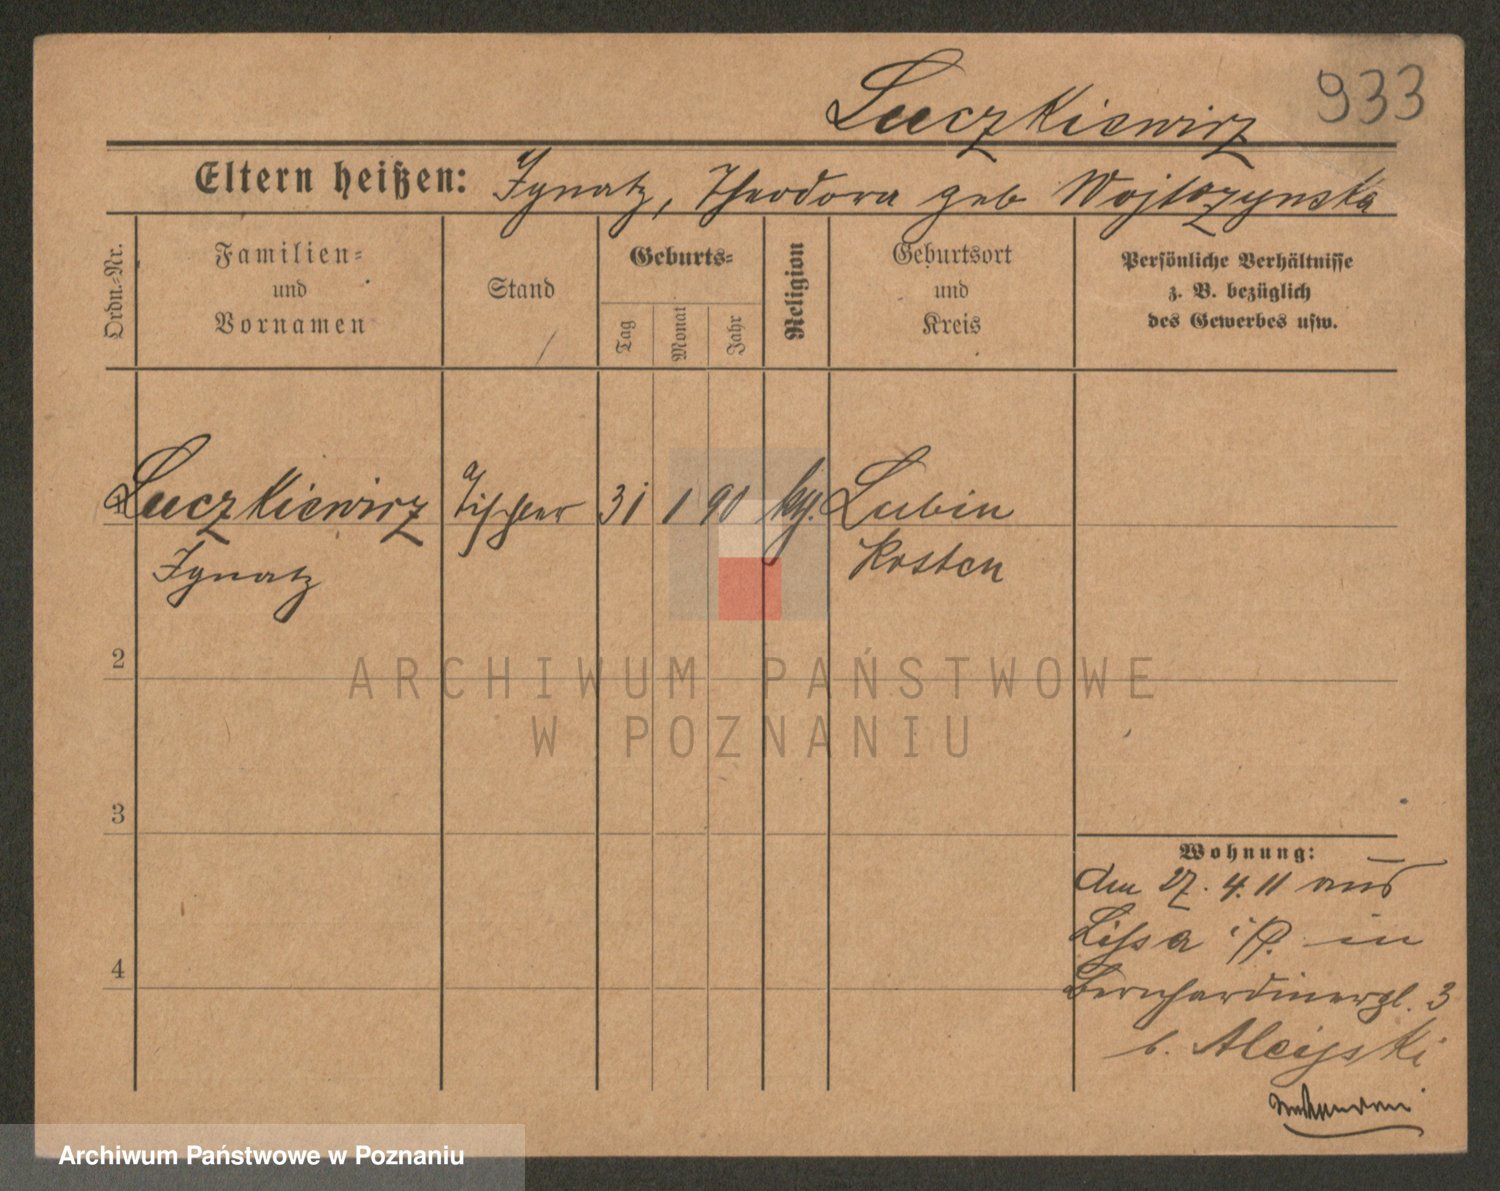 Luczkiewicz 933
Eltern heißen: Ignatz, Theodora geb Wojtczynska
Ordn.-Nr.
Familien-
und
Vornamen
Stand
Geburts-
Tag
Monat
Jahr
Religion
Geburtsort
und
Kreis
Persönliche Verhältnisse
z. B. bezüglich
des Gewerbes usw.
Luczkiewicz Tischler 31 1 90 kg. Lubin
Ignatz Kosten
2
ARCHIWUM PAŃSTWOWE
W POZNANIU
3
Wohnung:
den 27. 4. 11 aus
Lissa i/P. in
4
Bernhardinerpl. 3
b.
Archiwum Państwowe w Poznaniu